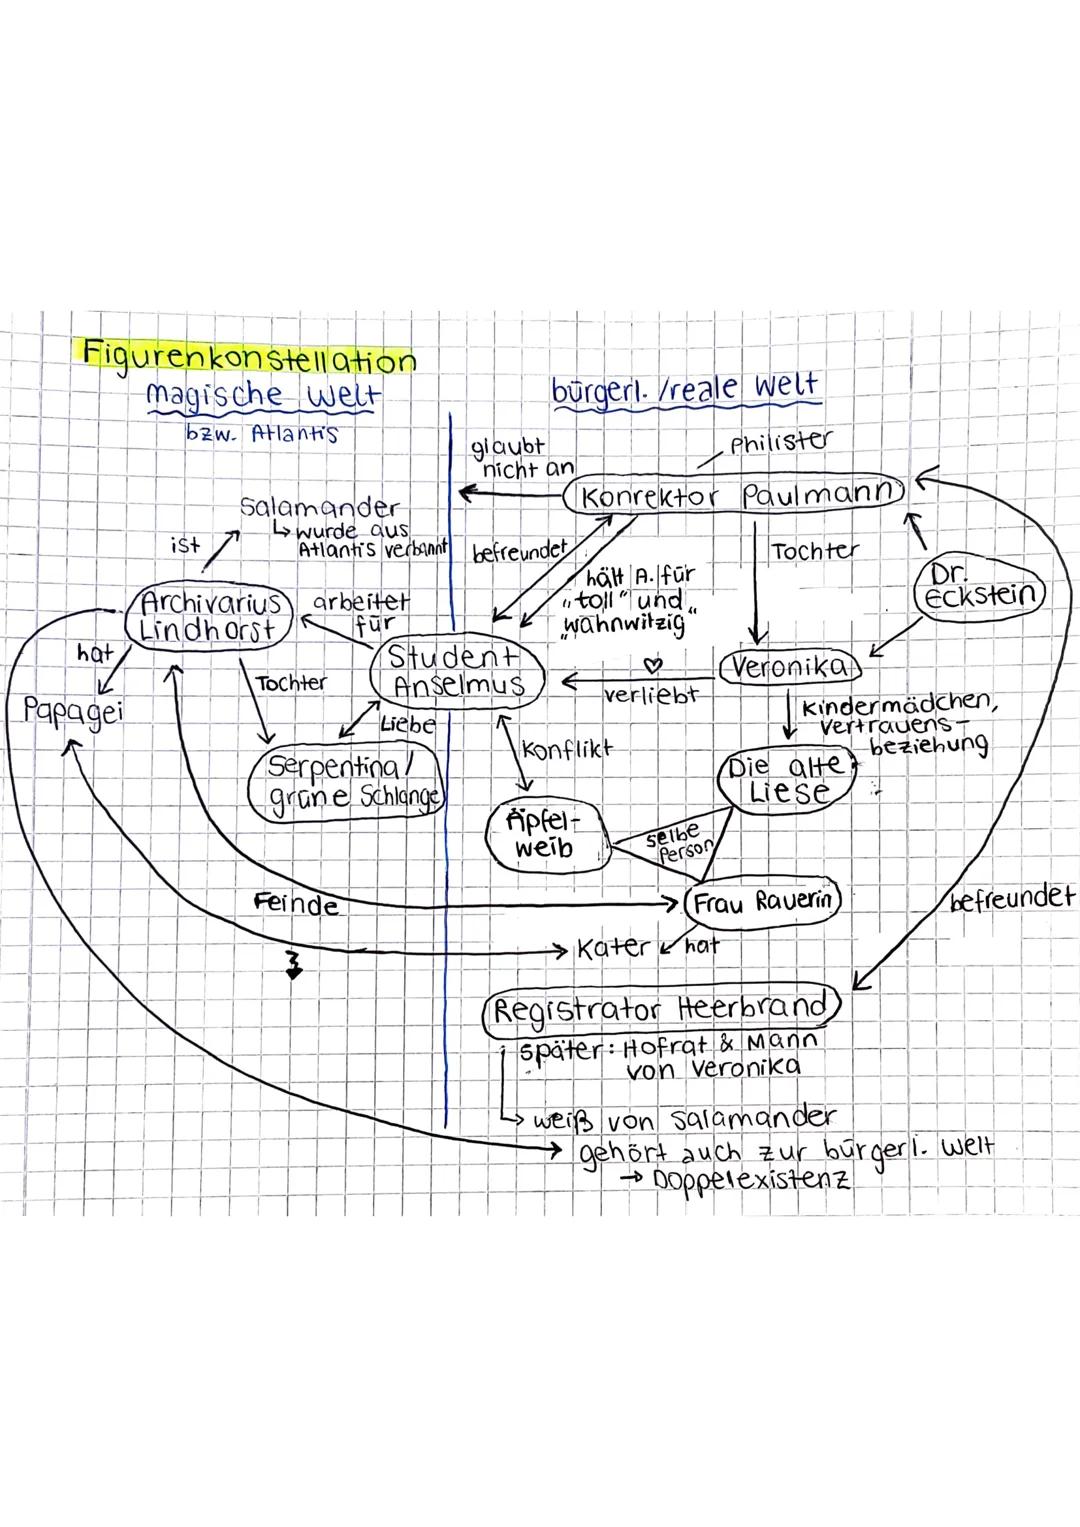 Figurenkonstellation
magische Welt
bzw. Atlantis
bürgerl. /reale Welt
glaubt
nicht an
Philister
Konrektor Paulmann
Salamander
↳ wurde aus
Atlantis verbannt
ist
befreundet
hält A. für
„toll" und
„wahnwitzig"
Tochter
Dr.
Eckstein
Archivarius
Lindhorst
arbeitet
für
hat
Papagei
Tochter
Student
Anselmus
verliebt
Veronika
Liebe
Konflikt
Kindermädchen,
Vertrauens-
beziehung
Serpentina/
grüne Schlange
Die alte
Liese
Äpfel-
weib
selbe
Person
Feinde
Frau Rauerin
befreundet
Kater
hat
Registrator Heerbrand
später: Hofrat & Mann
von Veronika
↳ weiß von Salamander
gehört auch zur bürgerl. Welt
→ Doppelexistenz